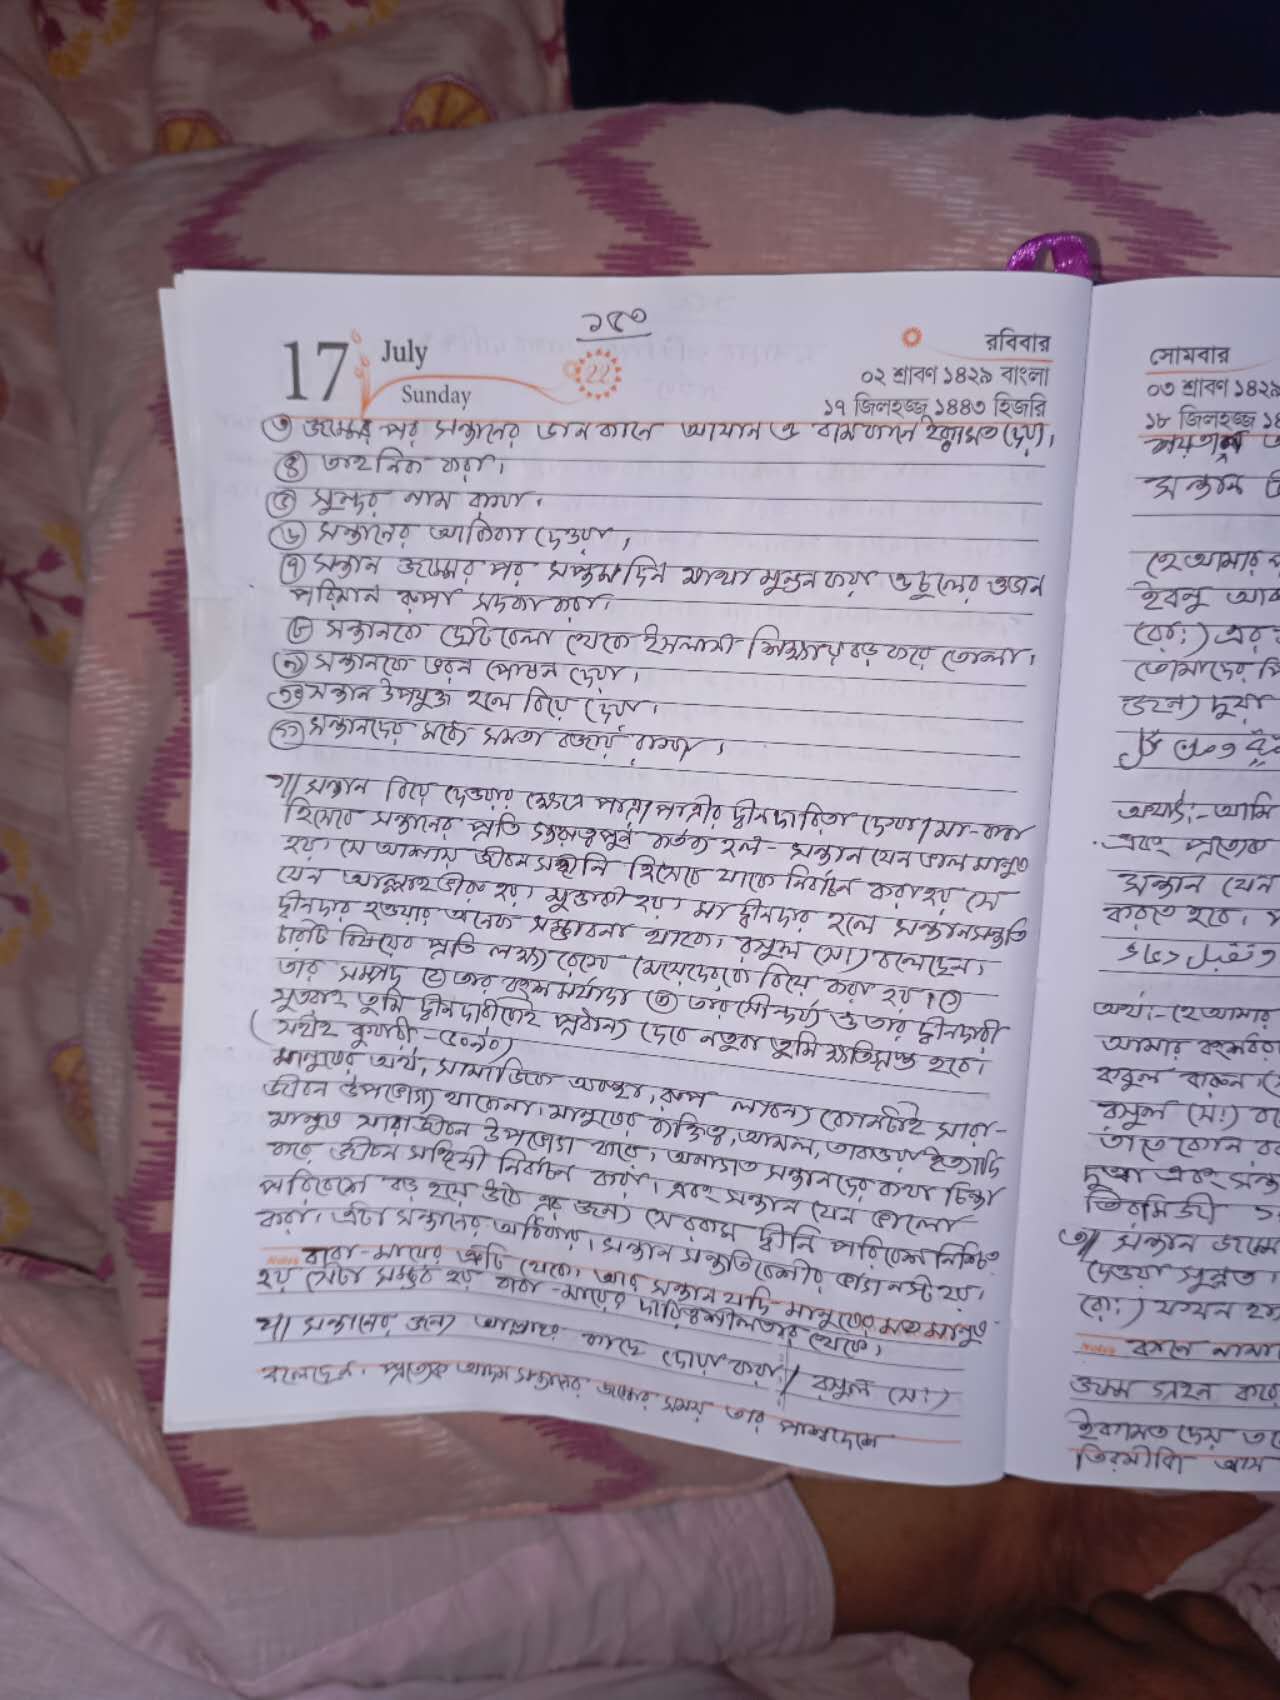 ১৫৩
17 July
Sunday
22
রবিবার
০২ শ্রাবণ ১৪২৯ বাংলা
১৭ জিলহজ্জ ১৪৪৩ হিজরি
৩ জন্মের পর সন্তানের ডান কানে আযান ও বাম কানে ইক্বামত দেয়া।
৪ তাহনিক করা।
৫ সুন্দর নাম রাখা।
৬ সন্তানের আকিকা দেওয়া।
৭ সন্তান জন্মের পর সপ্তম দিন মাথা মুন্ডন করা ও চুলের ওজন
পরিমান রুপা সদকা করা।
৮ সন্তানকে ছোটবেলা থেকে ইসলামী শিক্ষায় বড় করে তোলা।
৯ সন্তানকে ভরন পোষন দেয়া।
১০ সন্তান উপযুক্ত হলে বিয়ে দেয়া।
১১ সন্তানদের মধ্যে সমতা বজায় রাখা।
১৷৷ সন্তান বিয়ে দেওয়ার ক্ষেত্রে পাত্র/পাত্রীর দ্বীনদারিতা দেখা/মা-বাবা
হিসেবে সন্তানের প্রতি গুরুত্বপূর্ণ কর্তব্য হল- সন্তান যেন ভাল মানুষ
হয়। সে আশায় জীবন সঙ্গীনি হিসেবে যাকে নির্বাচন করা হয় সে
যেন আল্লাহভীরু হয়। মুত্তাকী হয়। মা দ্বীনদার হলে সন্তানসন্ততি
দ্বীনদার হওয়ার অনেক সম্ভাবনা থাকে। রসুল (সা) বলেছেন।
চারটি বিষয়ের প্রতি লক্ষ্য রেখে মেয়েদেরকে বিয়ে করা হয়। ১
তার সম্পদ ২ তার বংশ মর্যাদা ৩ তার সৌন্দর্য্য ৪ তার দ্বীনদারী
সুতরাং তুমি দ্বীনদারীকেই প্রাধান্য দেবে নতুবা তুমি ক্ষতিগ্রস্ত হবে।
(সহীহ বুখারী-৫০৯০)
মানুষের অর্থ, সামাজিক অবস্থা, রূপ লাবন্য কোনটাই সারা-
জীবন উপভোগ্য থাকেনা। মানুষের ব্যক্তিত্ব, আমল, তাকওয়া ইত্যাদি
মানুষ সারা জীবন উপভোগ করে। অনাগত সন্তানদের কথা চিন্তা
করে জীবন সঙ্গিনী নির্বাচন করা। এবং সন্তান যেন ভালো
পরিবেশে বড় হয়ে উঠে এর জন্য সে রকম দ্বীনি পরিবেশ নিশ্চিত
করা। এটা সন্তানের অধিকার। সন্তান সন্ততি বেশীর ভাগ নস্ট হয়।
Notes বাবা-মায়ের ত্রুটি থেকে। আর সন্তান যদি মানুষের মত মানুষ
হয় সেটা সম্ভব হয় বাবা-মায়ের দায়িত্বশীলতার থেকে।
২৷৷ সন্তানের জন্য আল্লাহর কাছে দোয়া করা৷৷ রসুল (সঃ)
বলেছেন। প্রত্যেক আদম সন্তানের জন্মের সময় তার পার্শ্বদেশে
সোমবার
০৩ শ্রাবণ ১৪২৯
১৮ জিলহজ্জ ১৪
শয়তান
সন্তান
হে আমার
ইবনু আব
(রাঃ) এর
তোমাদের পি
জন্য দুয়া
অর্থাৎ:- আমি
এবং প্রত্যেক
সন্তান যেন
করতে হবে।
وتقبل دعاء
অর্থ:- হে আমার
আমার বংশধর
কবুল করুন।
রসুল (সঃ) ব
তাতে কোন
দুআ এবং সন্ত
তিরমিজী
৩৷৷ সন্তান জন্মে
দেওয়া সুন্নত।
(রাঃ) যখন
Notes কানে নামা
জন্ম গ্রহন করে
ইকামত দেয়
তিরমীযি